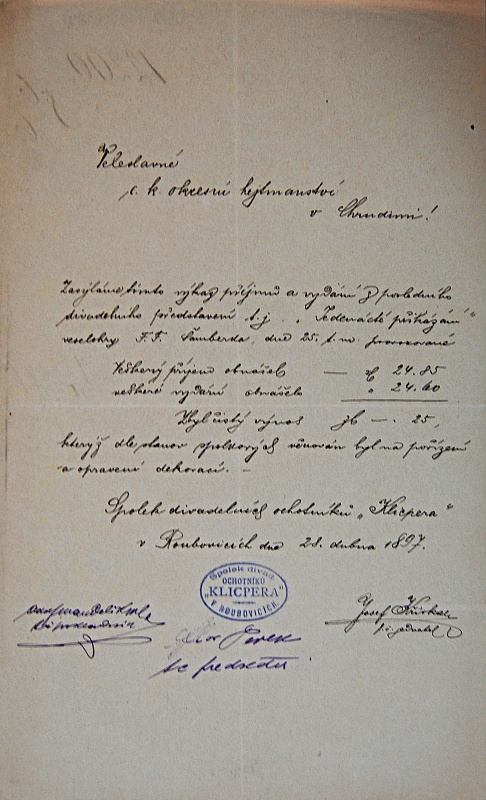 Veleslavné
c. k. okresní hejtmanství
v Chrudimi!
Zasýláme tímto výkaz příjmů a vydání z posledního
divadelního představení t. j. „Jedenácté přikázání"
veselohry F. F. Šamberka, dne 25. t. m. provozované
Veškerý příjem obnášel — zl. 24.85
veškeré vydání obnášelo „ 24.60
Zbyl čistý výnos zl. — . 25,
kterýž dle stanov spolkových věnován byl na pořízení
a opravení dekorací. —
Spolek divadelních ochotníků „Klicpera"
v Roubovicích dne 28. dubna 1897.
Spolek divad.
OCHOTNÍKŮ
„KLICPERA"
V ROUBOVICÍCH.
Josef
t. č. předseda
t. č. jednatel